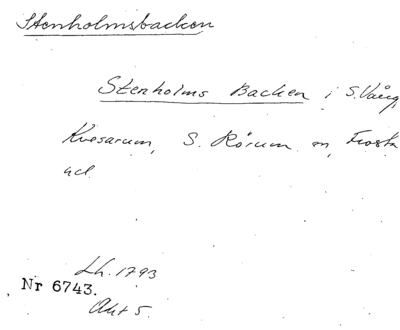 Stenholmsbacken
Stenholms Backen i S. Vång,
Kvesarum, S. Rörum sn, Frosta
hd.
Lh. 1793
Nr 6743.
Akt 5.